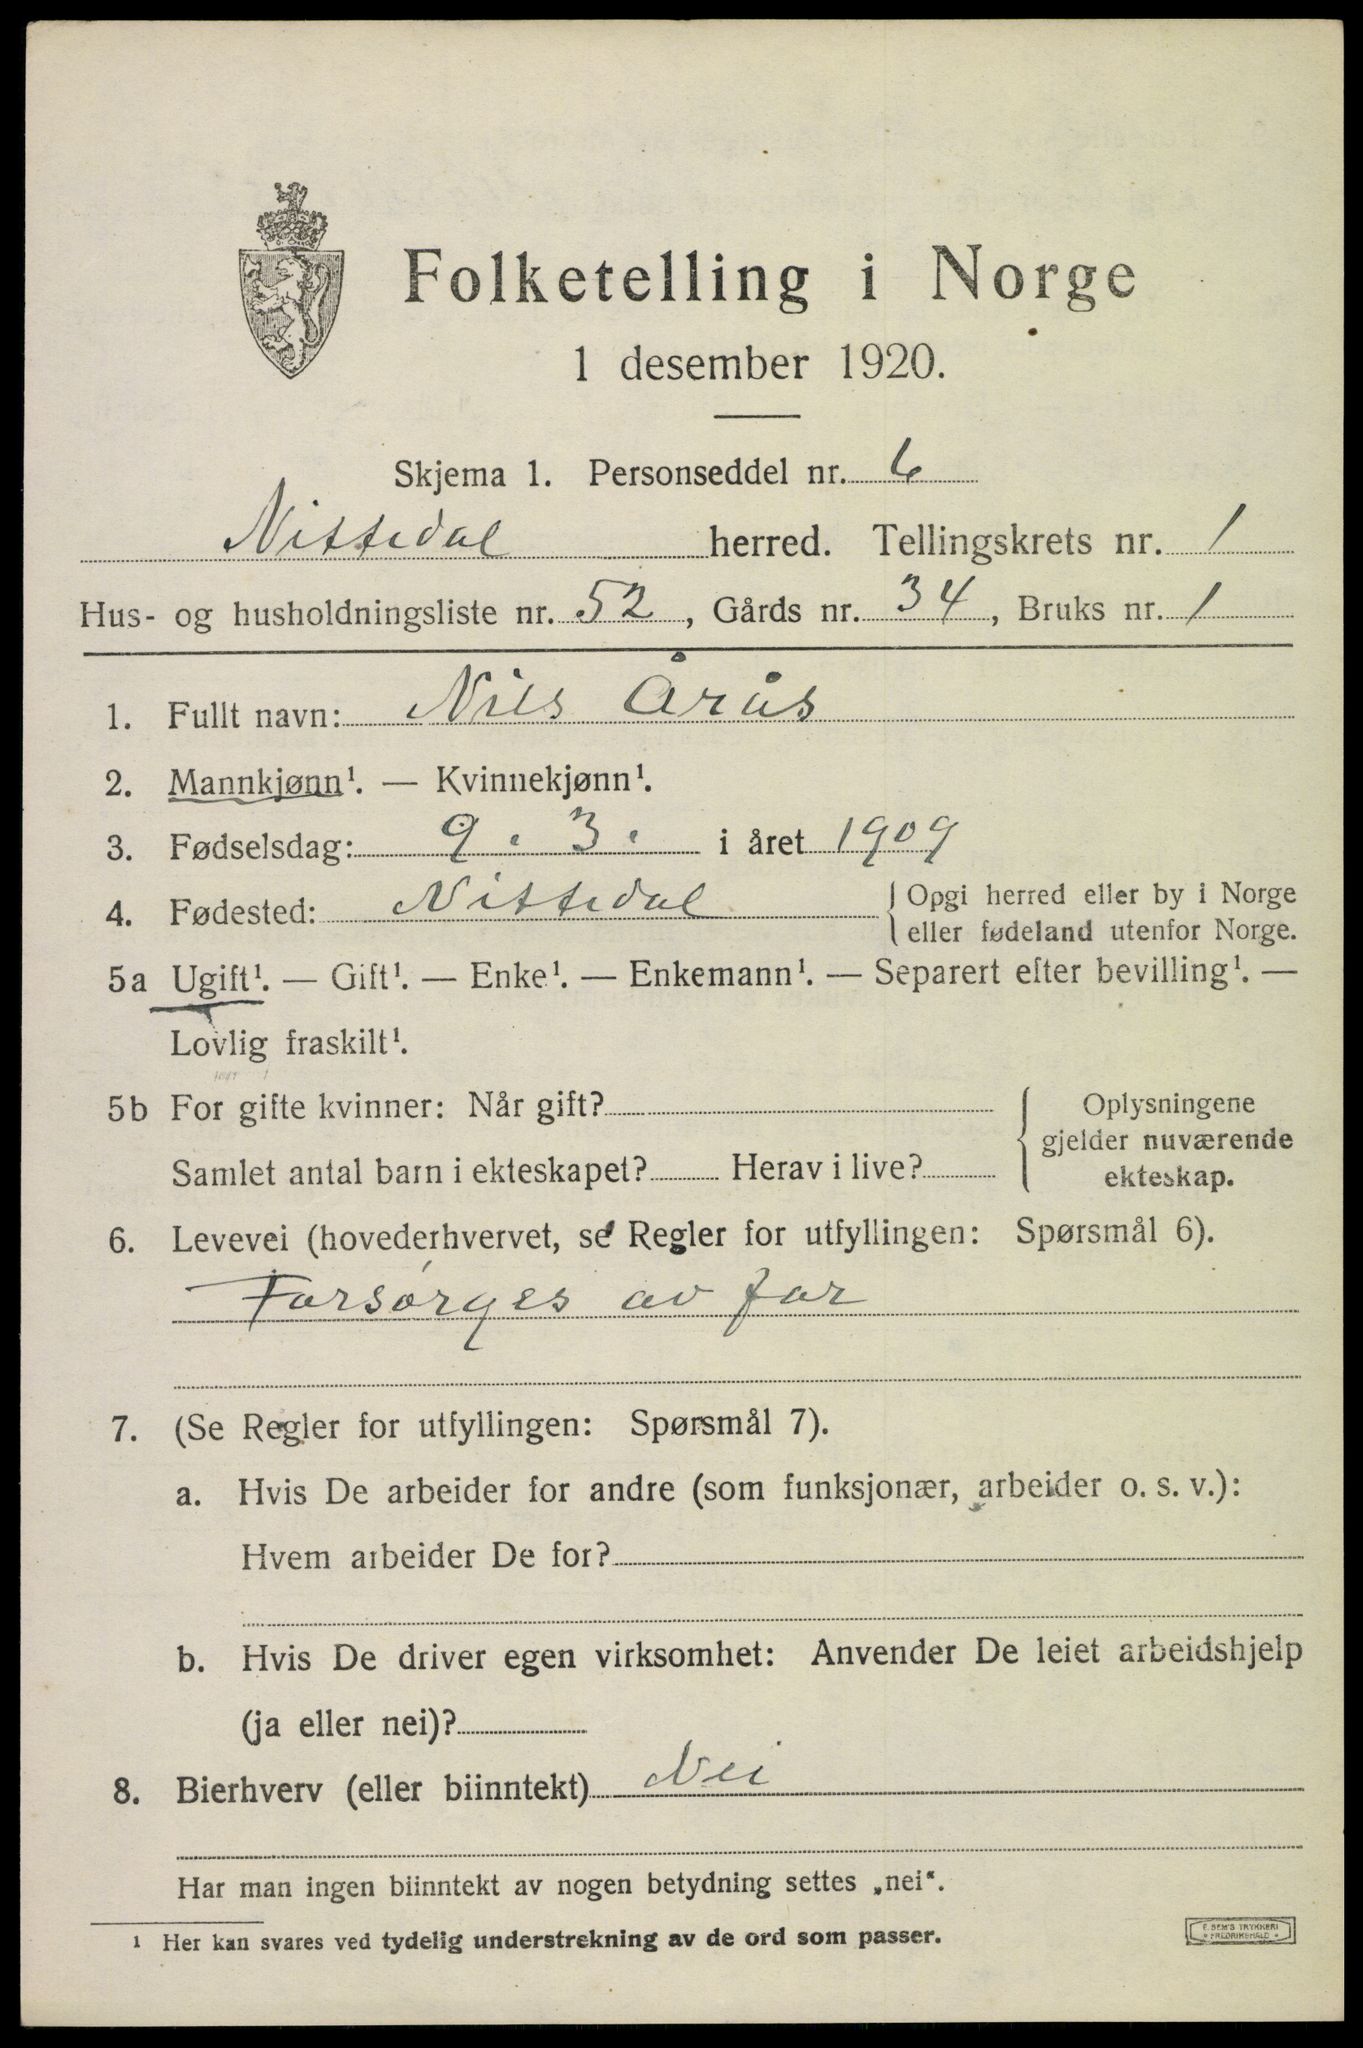 Folketelling i Norge
1 desember 1920.
Skjema 1. Personseddel nr. 6
Nittedal herred. Tellingskrets nr. 1
Hus- og husholdningsliste nr. 52, Gårds nr. 34, Bruks nr. 1
1. Fullt navn: Nils Årås
2. Mannkjønn¹. — Kvinnekjønn¹.
3. Fødselsdag: 9. 3. i året 1909
4. Fødested: Nittedal { Opgi herred eller by i Norge
eller fødeland utenfor Norge.
5a Ugift¹. — Gift¹. — Enke¹. — Enkemann¹. — Separert efter bevilling¹. —
Lovlig fraskilt¹.
5b For gifte kvinner: Når gift?
Samlet antal barn i ekteskapet? Herav i live?
{ Oplysningene
gjelder nuværende
ekteskap.
6. Levevei (hovederhvervet, se Regler for utfyllingen: Spørsmål 6).
Forsørges av far
7. (Se Regler for utfyllingen: Spørsmål 7).
a. Hvis De arbeider for andre (som funksjonær, arbeider o. s. v.):
Hvem arbeider De for?
b. Hvis De driver egen virksomhet: Anvender De leiet arbeidshjelp
(ja eller nei)?
8. Bierhverv (eller biinntekt) Nei
Har man ingen biinntekt av nogen betydning settes „nei“.
¹ Her kan svares ved tydelig understrekning av de ord som passer.
E. SEM'S TRYKKERI
FREDRIKSHALD